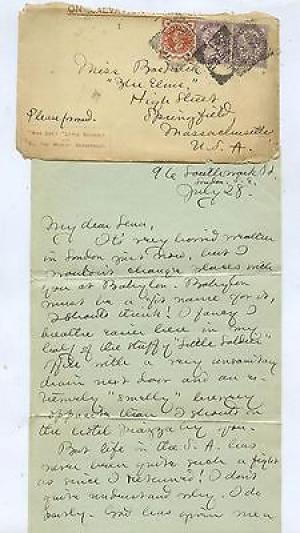 ON SALVATION
Miss Bostwick
"The Elms,"
High Street
Springfield,
Massachusetts
U. S. A.
Please forward.
"War Cry," "Little Soldier"
96 Southwark St.
London. S.E.
July 28.
My dear Lena,
It's very horrid weather
in London just now, but I
wouldn't change places with
you at Babylon. Babylon
must be a fit name for it,
I should think! I fancy I
breathe easier here in my
half of the stuffy "Little Soldier"
with a very unsanitary
drain next door and an ex-
tremely "smelly" brewery
opposite than I should in
the hotel by you.
But life in the S. A. has
never been quite such a fight
as since I returned! I don't
quite understand why. I do
partly. God has given me a